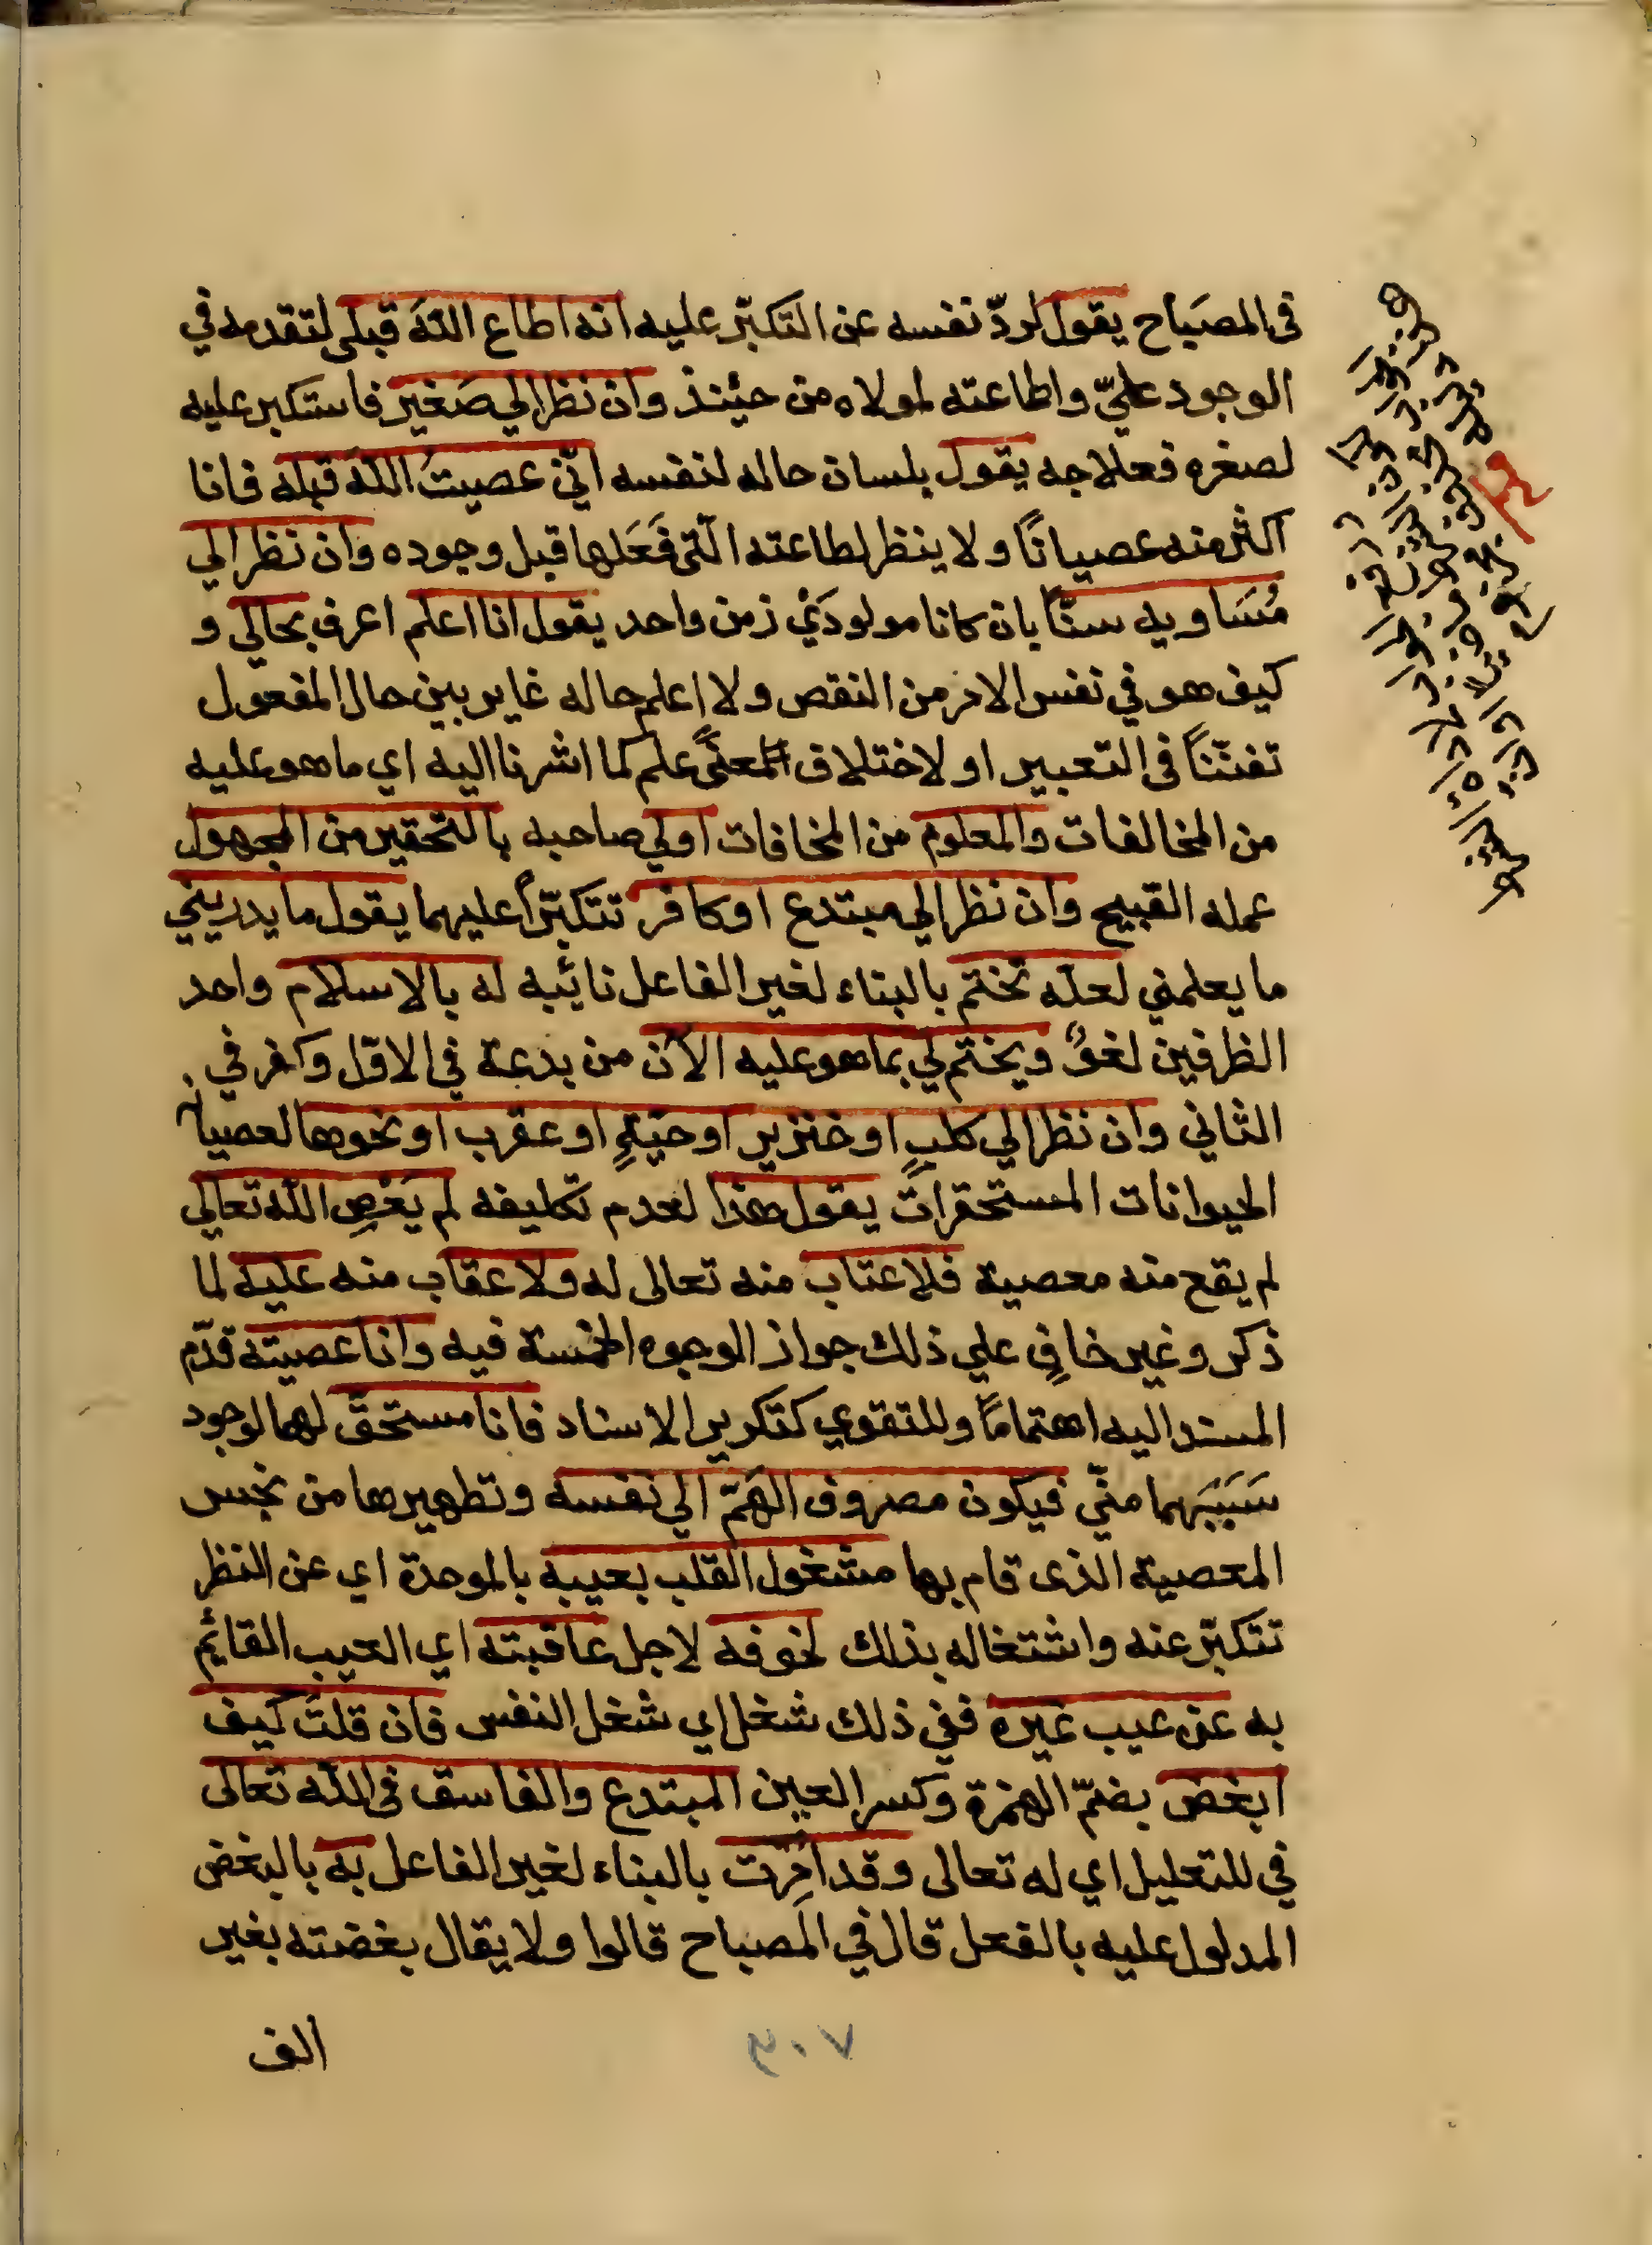 فى المصَباح يقول لردّ نفسه عن التكبّر عليه انه اطاع اللهَ قبلى لتقدمه في
الوجود عليّ واطاعته لمولاه من حيئنذ وان نظر الي صَغير فاستكبر عليه
لصغره فعلاجه يقول بلسان حاله لنفسه انّي عصيتُ اللهَ قبله فانا
اكثر منه عصيانًا ولا ينظر لطاعته الّتى فَعَلها قبل وجوده وان نظر الي
مُسَاويه سنّاً بان كانا مولودَيْ زمن واحد يقول انا اعلم اعرف بحالي و
كيف هو في نفس الامر من النقص ولا اعلم حاله غاير بين حال المفعول
تفنّنًا فى التعبير او لاختلاف المعلىً علم كما اشرنا اليه اي ما هو عليه
من المخالفات والمعلوم من المخافات اولي صاحبه بالتحقير من المجهول
عمله القبيح وان نظر الي مبتدع او كافر تتكبّرًا عليهما يقول ما يدريني
ما يعلمني لعلّه تختم بالبناء لغير الفاعل نائبه له بالاسلام واحد
الظرفين لغوٌ ويختم لي بما هو عليه الآن من بدعة في الاوّل وكفر في
الثاني وان نظر الي كلبٍ او خنزير او حيّةٍ او عقرب او نحوها لعصيان
الحيوانات المستحقرات يقول هذا لعدم تكليفه لم يَعْصِ الله تعالي
لم يقع منه معصية فلا عتاب منه تعالى له ولا عقاب منه عليه لما
ذكر وغير خافٍ علي ذلك جواز الوجوه الخمسة فيه وانا عصيته قدّم
المسند اليه اهتمامًا وللتقوي كتكرير الاسناد فانا مستحقّ لهما لوجود
سَبَبَيهما منّي فيكون مصروف الهَمّ الي نفسه وتطهيرها من نجس
المعصية الذى قام بها مشغول القلب بعيبه بالموحدة اي عن النظر
تتكبّر عنه واشتغاله بذلك لخوفه لاجل عاقبته اي العيب القائم
به عن عيب غيره ففي ذلك شغل اي شغل النفس فان قلتَ كيف
ابغض بضمّ الهمزة وكسر العين المبتدع والفاسق فى الله تعالى
في للتعليل اي له تعالى وقد اُمِرت بالبناء لغير الفاعل به بالبغض
المدلول عليه بالفعل قال في المصباح قالوا ولا يقال بغضته بغير
الف